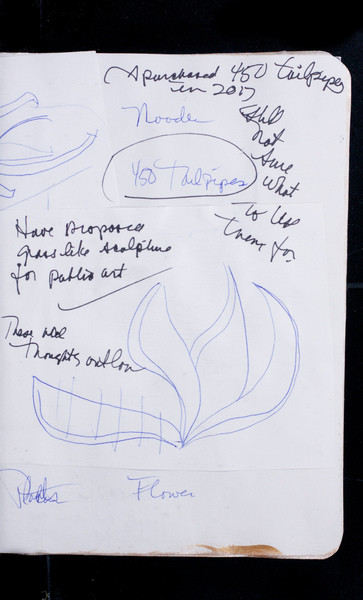 I purchased 450 Tailpipes
in 2017
Noodle
Still
not
Sure
What
To Use
them for
450 Tailpipes
Have proposed
grass like sculpture
for public art
These are
Thoughts on
Flower